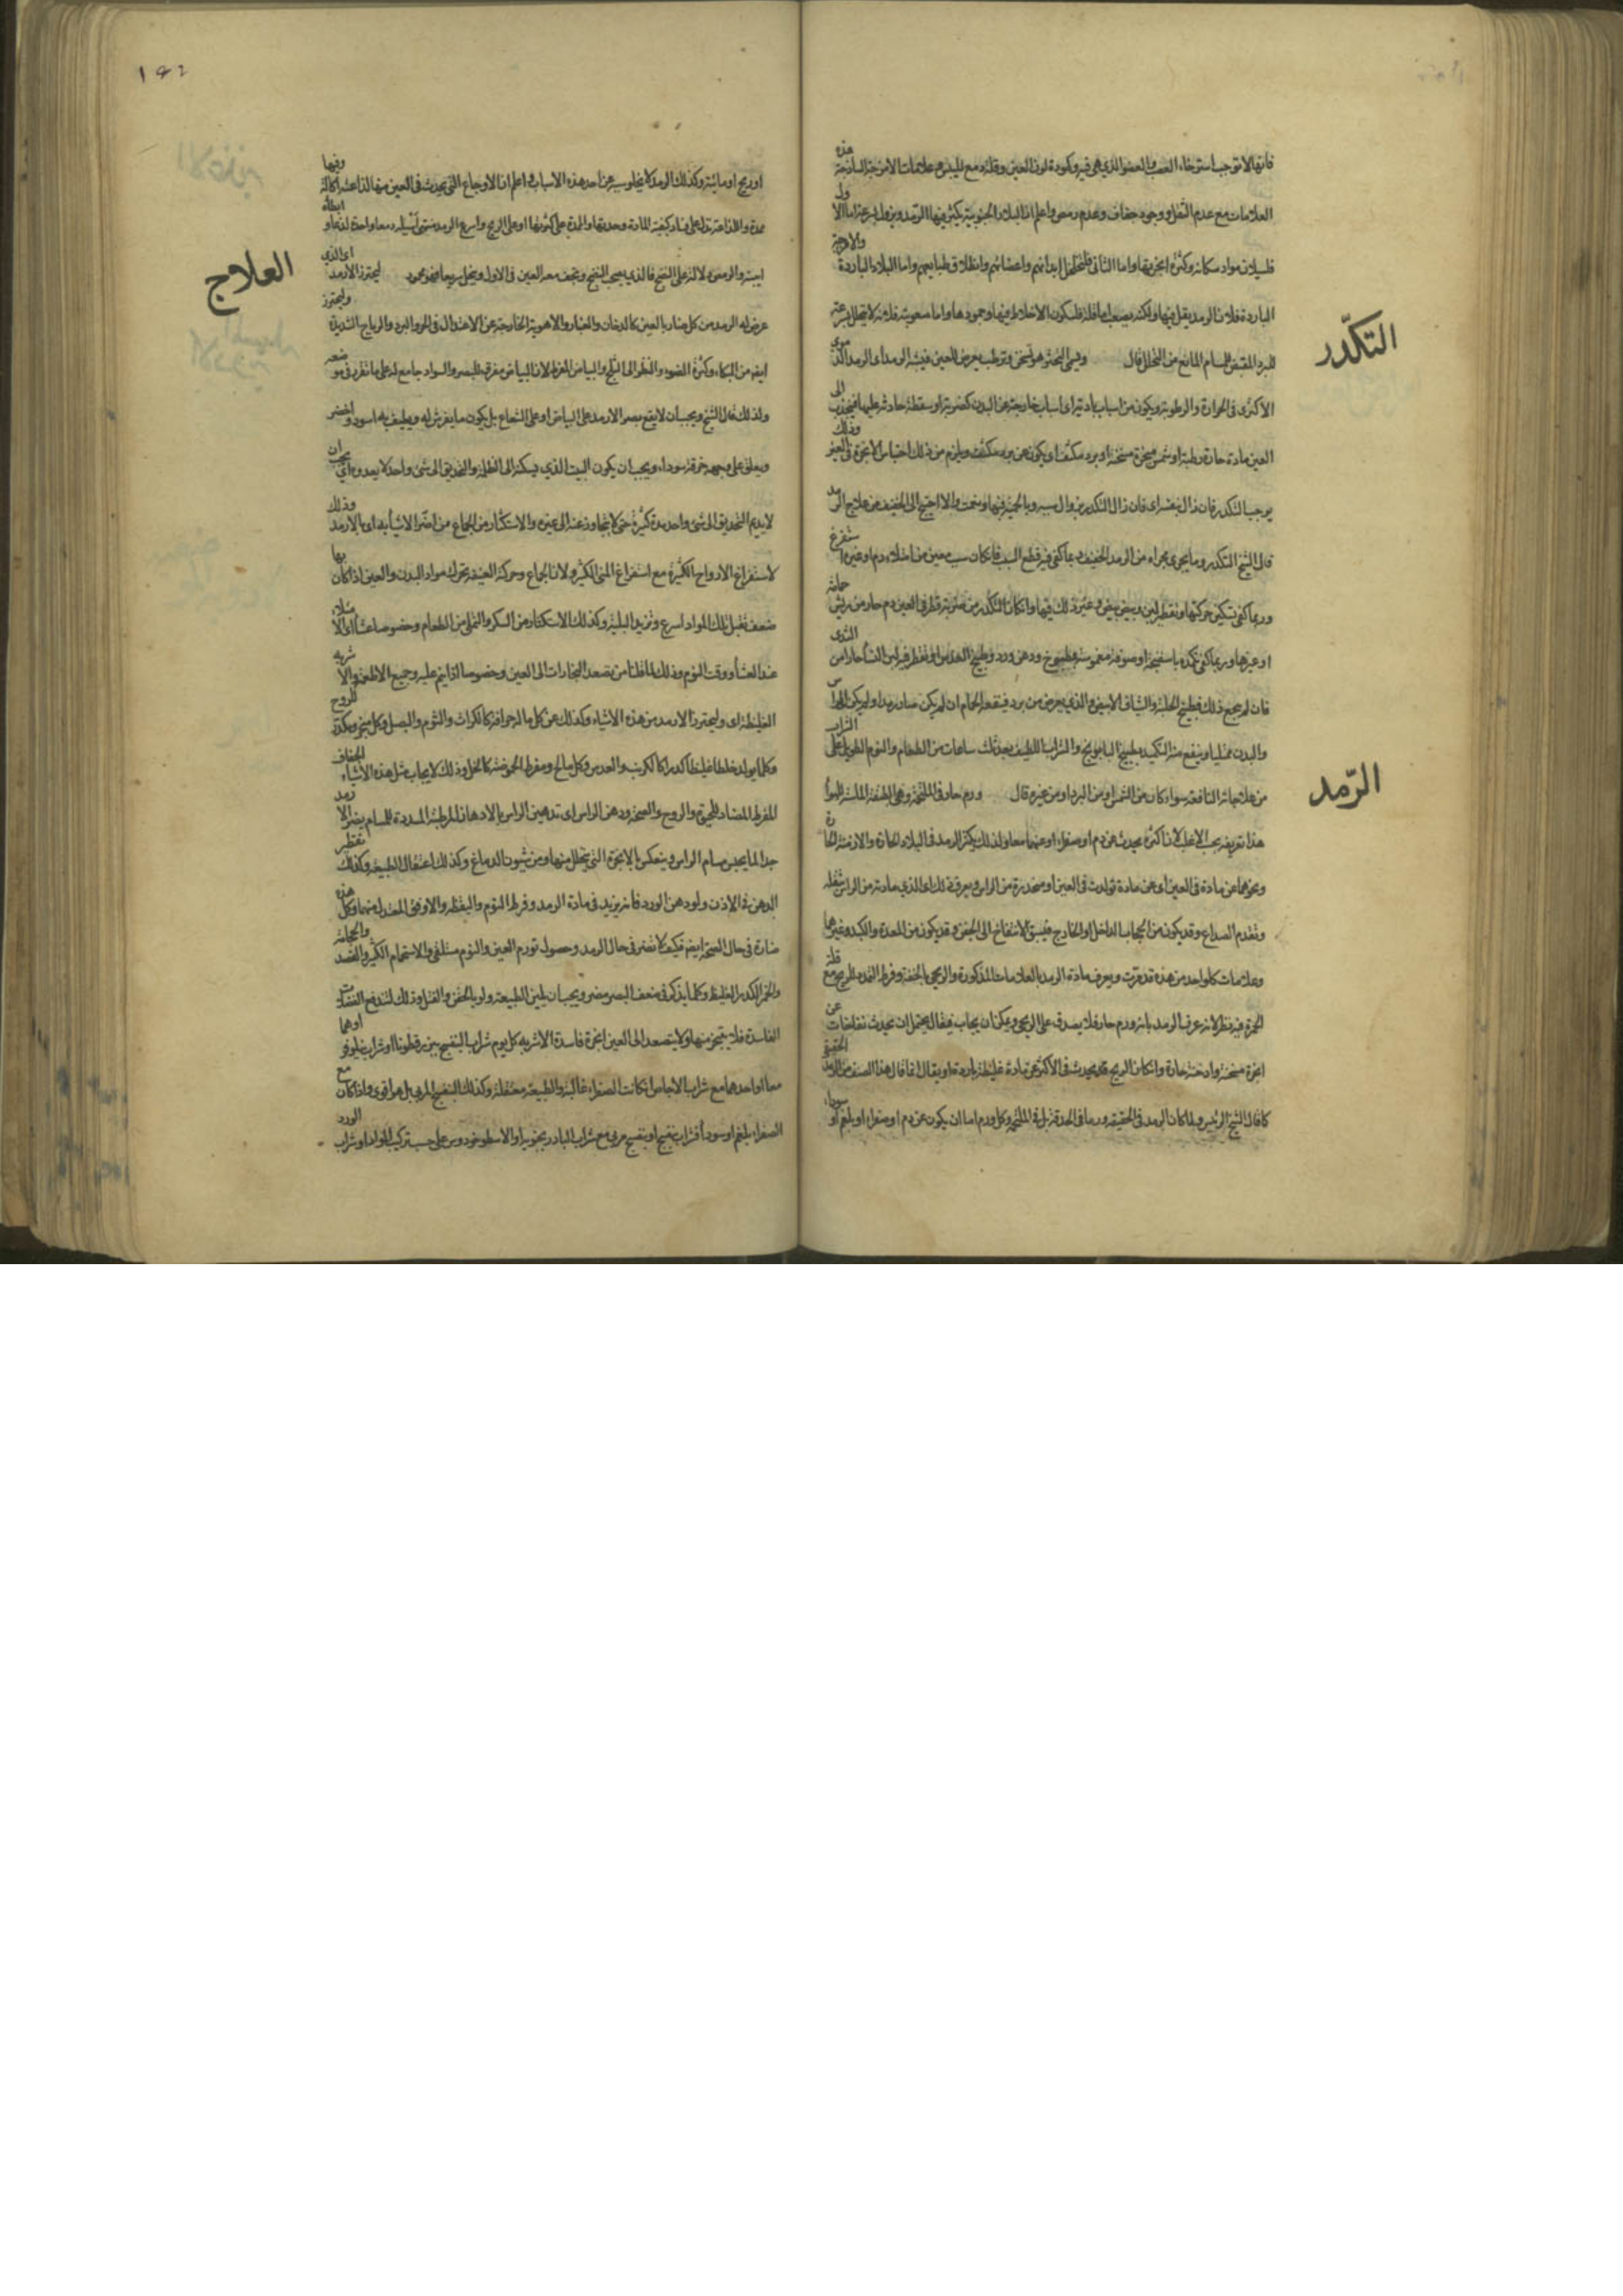 فانها لا توجب استرخاء العصب والعضو الذي هي فيه وكمودة لون العين وقلة دمع لليبس وعلامات الامزجة الساذجة هذه
العلامات مع عدم الثقل ووجود جفاف وعدم رمص واعلم ان البلاد الجنوبية يكثر فيها الرمد ويزول بسرعة اما الاول
فلسيلان مواد سكانه وكثرة ابخرتها واما الثاني فلتخلخل ابدانهم واعضائهم وانطلاق طبايعهم واما البلاد الباردة والازمنة
الباردة فلان الرمد يقل فيها ولكنه يصعب اما قلته فلسكون الاخلاط فيها وجمودها واما صعوبته فلانه لا يتحلل بسرعة
للبرد المقبض للمسام المانع من التحلل قال
التكدّر
ويسمى التخثر هو تسخن وترطب يعرض للعين فيشبه الرمد اي الرمد الدموي
الاكثري في الحرارة والرطوبة ويكون من اسباب بادية اي اسباب خارجة عن البدن كضربة او سقطة حادثة عليها فينجذب الى
العين مادة حارة رطبة او شمس مبخرة مسخنة او برد مكثف اي يكون عن برد مكثف ويلزم من ذلك احتباس الابخرة في العين وذلك
يوجب التكدر فان زال بنفسه اي فان زال التكدر بزوال سببه وبالحمية فيها ونعمت والا احتيج الى الخفيف من علاج الرمد
قال الشيخ التكدر وما يجري مجراه من الرمد الخفيف ربما كفى فيه قطع السبب فان كان سبب معين من امتلاء دم او غيره استفرغ
وربما كفى تسكين حركتها وتقطير لبن وبياض بيض وغير ذلك فيها وان كان التكدر من ضربة قطر في العين دم حار من ريش حمامة
او غيرها وربما كفى تكميده باسفنجة او صوفة مغموسة بمطبوخ ودهن ورد وطبيخ العدس او تقطر فيه لبن النساء حارا من الثدي
فان لم ينجع ذلك فطبيخ الحلبة والشياف الابيض والذي يعرض من برد فينفعه الحمام ان لم يكن صار رمدا ولم يكن الراس
والبدن ممتليا وينفع منه التكميد بطبيخ البابونج والشراب اللطيف بعد ثلث ساعات من الطعام والنوم الطويل على الشراب
من علاجاته النافعة سواء كان من الشمس او من البرد او من غيره قال
الرّمد
ورم حار في الملتحمة وهي الطبقة
هذا تعريفه بحسب الاغلب لان اكثره يحدث عن دم او صفراء او عنهما معا ولذلك يكثر الرمد في البلاد الحارة والازمنة الحارة
ونحوهما عن مادة في العين اي عن مادة تولدت في العين او منحدرة من الراس ويعرف ذلك اي الذي مادته من الراس بثقله
وتقدم الصداع وقد يكون من الحجاب الداخل او الخارج فيسبق الانتفاخ الى الجفن وقد يكون من المعدة والكبد وغيرهما
وعلامات كل واحد من هذه قد عرفت ويعرف مادة الرمد بالعلامات المذكورة والريحي بالخفة وفرط التمدد للريح مع قلة
الحمرة فيه نظر لانه عرف الرمد بانه ورم حار فلا يصدق على الريحي ويمكن ان يجاب فيقال يحتمل ان يحدث عن
ابخرة مسخنة وادخنة حارة وان كان الريح قد يحدث في الاكثر عن مادة غليظة باردة او يقال انما قال هذا الصنف من الرمد الحقيقي
كما قال الشيخ الرئيس ولما كان الرمد في الحقيقة ورما في الحدقة بل في الملتحمة وكل ورم اما ان يكون عن دم او صفراء او بلغم او سوداء
١٤٢
او ريح او مائية وكذلك الرمد لا يخلو سببه عن احد هذه الاسباب واعلم ان الاوجاع التي تحدث في العين منها لذاعة اكالة ومنها
ممددة واللذاعة تدل على فساد كيفية المادة وحدتها والممددة على كثرتها او على الريح واسرع الرمد منتهى اسيله دمعا واحده لذعا وابطأه
ايبسه والرمص دلالة على النضج فالذي يصحب النضج ويخف معه العين في الاول وينحل سريعا فهو محمود
العلاج
ليحترز الارمد اي الذي
عرض له الرمد من كل ضار بالعين كالدخان والغبار والاهوية الخارجة عن الاعتدال في الحر والبرد والرياح الشديدة وليحترز
ايضا من البكاء وكثرة الضوء والنظر الى الثلج والبياض المفرط لان البياض مفرق للبصر والسواد جامع له على ما تقرر في موضعه
ولذلك قال الشيخ ويجب ان لا يقع بصر الارمد على البياض او على الشعاع بل يكون ما يفرش له ويطيف به اسود واخضر
ويعلق على وجهه خرقة سوداء ويجب ان يكون البيت الذي يسكنه الى الظلمة والتحديق الى شيء واحد لا يعدوه اي يجب ان
لا يديم التحديق الى شيء واحد مدة كثيرة حتى لا يتجاوز عنه الى غيره والاستكثار من الجماع من اضر الاشياء به اي بالارمد وذلك
لاستفراغ الارواح الكثيرة مع استفراغ المني الكثير ولان الجماع وحركته العنيفة تحرك مواد البدن والعين اذا كان بها
ضعف تقبل تلك المواد اسرع وتزيد البلية وكذلك الاستكثار من السكر والتملي من الطعام وخصوصا عشاء اي الامتلاء
عند العشاء ووقت النوم وذلك لما قلنا من تصعد البخارات الى العين وخصوصا اذا نيم عليه وجميع الاطعمة والاشربة
الغليظة اي وليحترز الارمد من هذه الاشياء وكذلك عن كل ما له حرافة كالكراث والثوم والبصل وكل مبخر ومكدر للروح
وكل ما يولد خلطا غليظا كدرا كالكرنب والعدس وكل مالح ومفرط الحموضة كالخل وذلك لايجاب مثل هذه الاشياء الجفاف
المفرط المضاد للحيوة والروح والصحة ودهن الراس اي تدهين الراس بالادهان المرطبة المسددة للمسام يضر الارمد
جدا لما يحبس مسام الراس وينعكس الابخرة التي يتحلل منها ومن شئون الدماغ وكذلك اعتقال الطبيعة وكذلك تقطير
الدهن في الاذن ولو دهن الورد فانه يزيد في مادة الرمد وفرط النوم واليقظة والاوفق المعتدل منهما وكل هذه
ضارة في حال الصحة ايضا فكيف لا تضر في حال الرمد وحصول تورم العين والنوم مستلقيا والاستحمام الكثير والفصد والحجامة
والخمر الكدر الغليظ وكل ما يذكر في ضعف البصر مضر ويجب ان يلين الطبيعة ولو بالحقن والفتل وذلك لتندفع الفضلات
الفاسدة فلا يتبخر منها ولا يتصعد الى العين ابخرة فاسدة الاشربة كل يوم شراب البنفسج ببزرقطونا او شراب نيلوفر او هما
معا او احدهما مع شراب الاجاص ان كانت الصفراء غالبة والطبيعة معتقلة وكذلك البنفسج المربى بل هو اقوى واذا كان مع
الصفراء بلغم او سوداء فشراب بنفسج او بنفسج مربى مع شراب البادرنجبويه او الاسطوخودوس على حسب تركيب المواد او شراب الورد